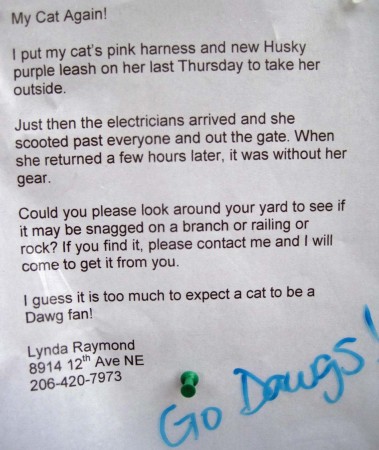 My Cat Again!
I put my cat's pink harness and new Husky
purple leash on her last Thursday to take her
outside.
Just then the electricians arrived and she
scooted past everyone and out the gate. When
she returned a few hours later, it was without her
gear.
Could you please look around your yard to see if
it may be snagged on a branch or railing or
rock? If you find it, please contact me and I will
come to get it from you.
I guess it is too much to expect a cat to be a
Dawg fan!
Lynda Raymond
8914 12th Ave NE
206-420-7973
Go Dawgs!